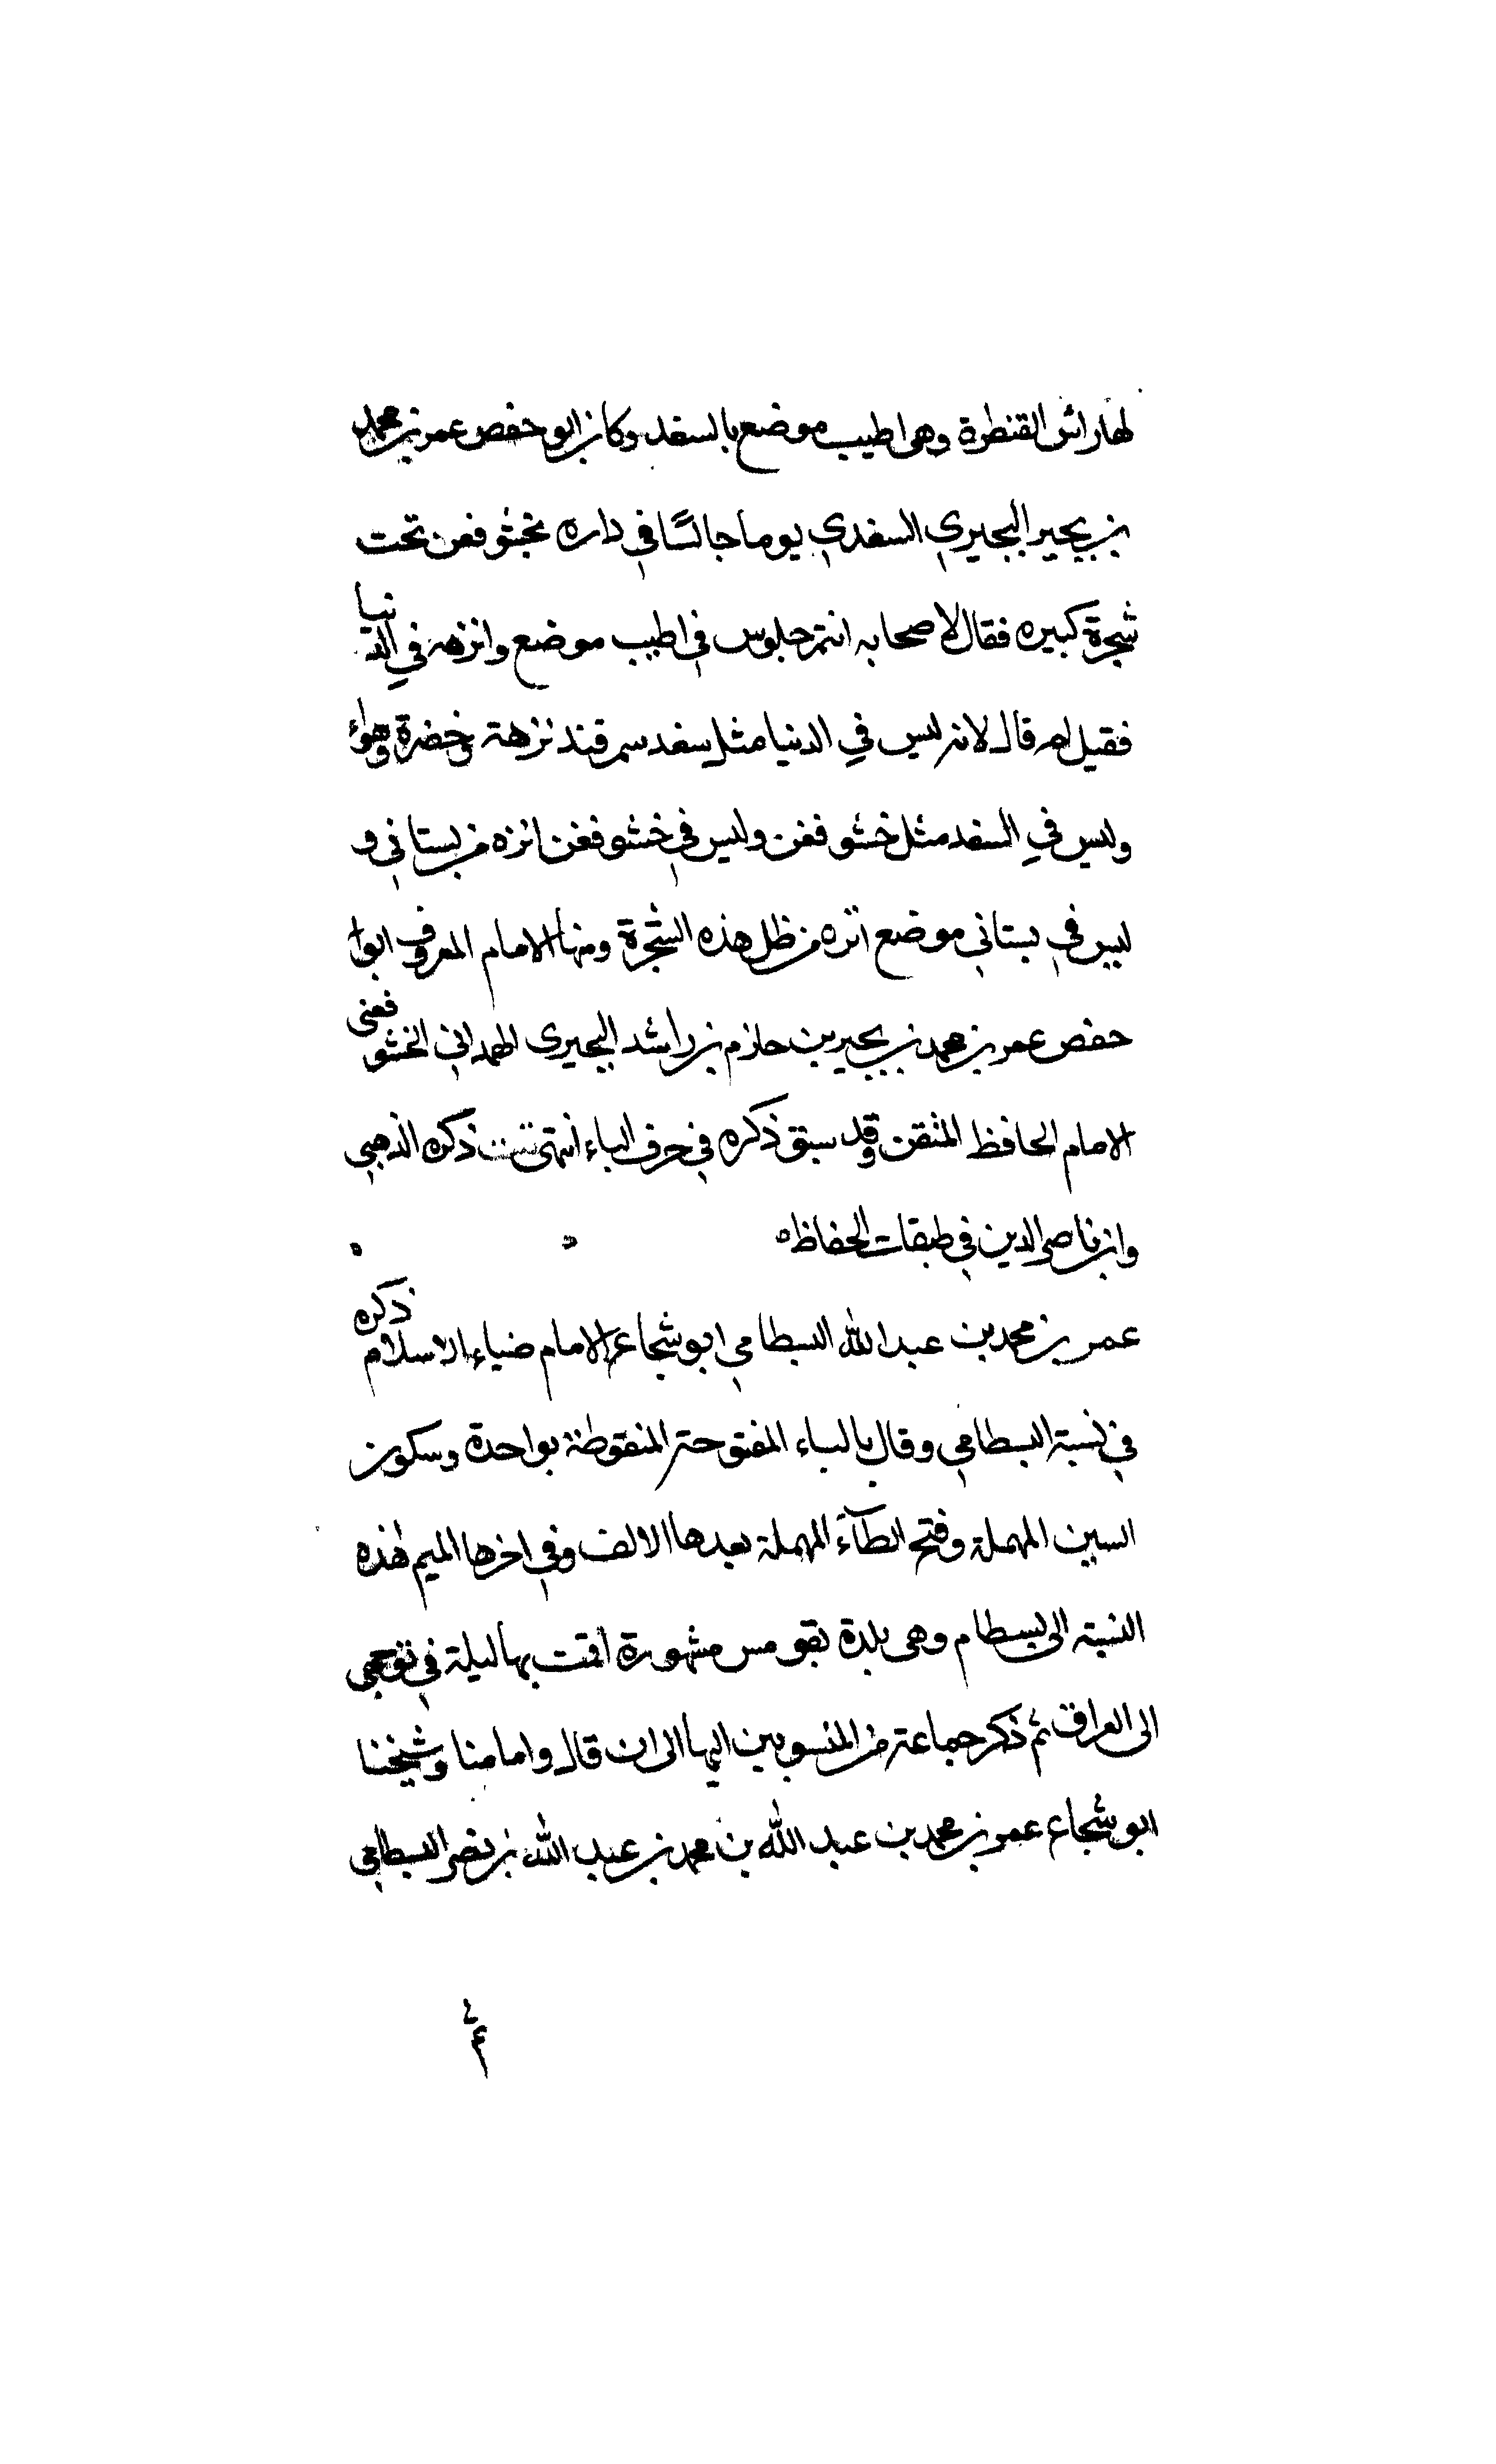 لها راس القنطرة وهى اطيب موضع بالسغد وكان ابو حفص عمر بن محمد
بن بجير البجيري السغدي يوما جالسًا في داره بخشو فغن تحت
شجرة كبيره فقال لاصحابه انتم جلوس في اطيب موضع وانزهه في الدنيا
فقيل له قال لانه ليس في الدنيا مثل سغد سمرقند نزهة وخضرة وهواء
وليس في السغد مثل خشو فغن وليس في خشو فغن انزه من بستاني و
ليس في بستاني موضع انزه من ظل هذه الشجرة ومنها الامام المعروف ابوا
حفص عمر بن محمد بن بجير بن حازم بن راشد البجيرى الهمداني الخشو فغنى
الامام الحافظ المتقن وقد سبق ذكره في حرف الباء انتهى ذكره الذهبي
وابن ناصر الدين في طبقات الحفاظ ه
عمر بن محمد بن عبد الله البسطامي ابو شجاع الامام ضياء الاسلام ذكره
في نسبة البسطامي وقال بالباء المفتوحة المنقوطة بواحدة وسكون
السين المهملة وفتح الطآء المهملة بعدها الالف وفي اخرها الميم هذه
النسبة الى بسطام وهى بلدة بقومس مشهورة اقمت بها ليلة في توجهى
الى العراق ثم ذكر جماعة من المنسوبين اليها الى ان قال وامامنا وشيخنا
ابو شجاع عمر بن محمد بن عبد الله بن محمد بن عبد الله بن نصر البسطامي